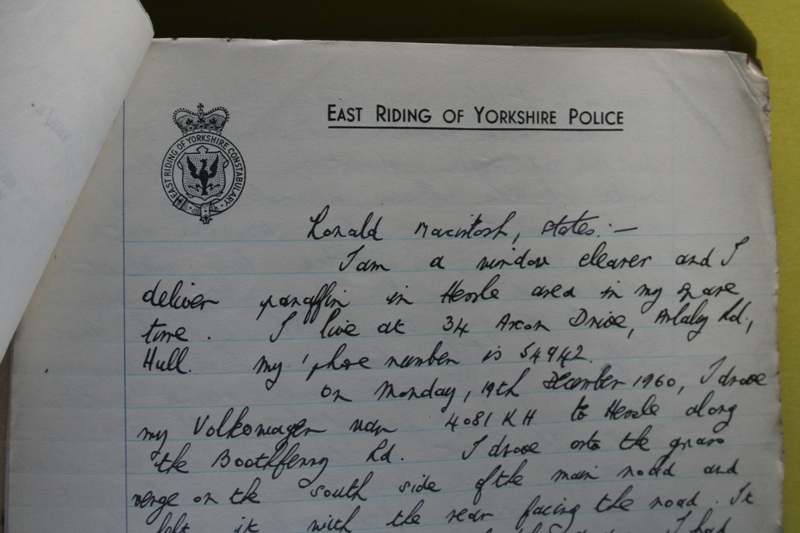 EAST RIDING OF YORKSHIRE POLICE
EAST RIDING OF YORKSHIRE CONSTABULARY
Ronald Macintosh, states:—
I am a window cleaner and I
deliver paraffin in Hessle area in my spare
time. I live at 34 Arcon Drive, Anlaby Rd.,
Hull. My 'phone number is 54942.
On Monday, 19th December 1960, I drove
my Volkswagen van 4081 KH to Hessle along
the Boothferry Rd. I drove onto the grass
verge on the south side of the main road and
left it with the rear facing the road. It
I had